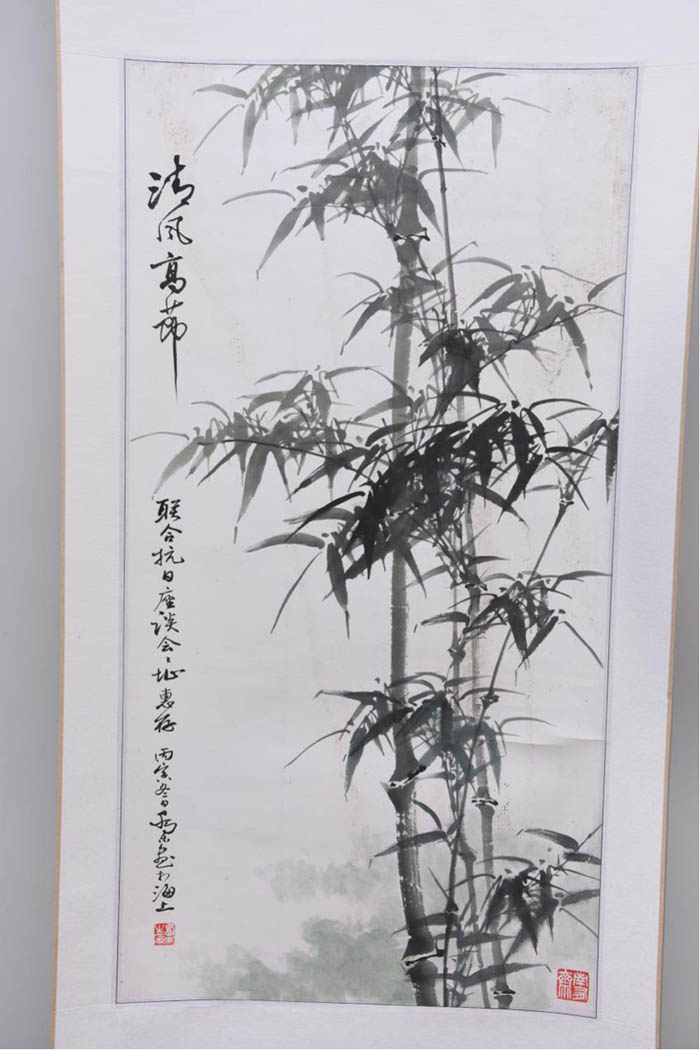 清风高节
联合抗日座谈会会址惠存 丙寅冬日 画于海上